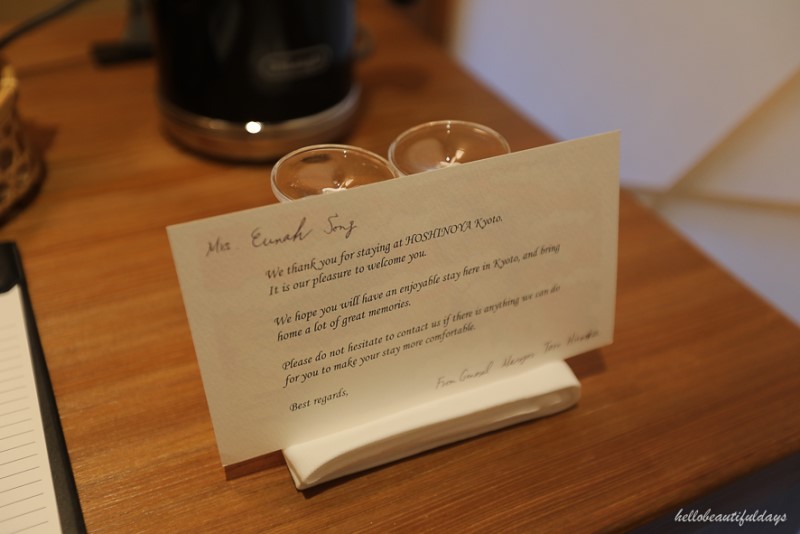 Mrs. Eunah Song
We thank you for staying at HOSHINOYA Kyoto.
It is our pleasure to welcome you.
We hope you will have an enjoyable stay here in Kyoto, and bring
home a lot of great memories.
Please do not hesitate to contact us if there is anything we can do
for you to make your stay more comfortable.
Best regards,
From General Manager
hellobeautifuldays